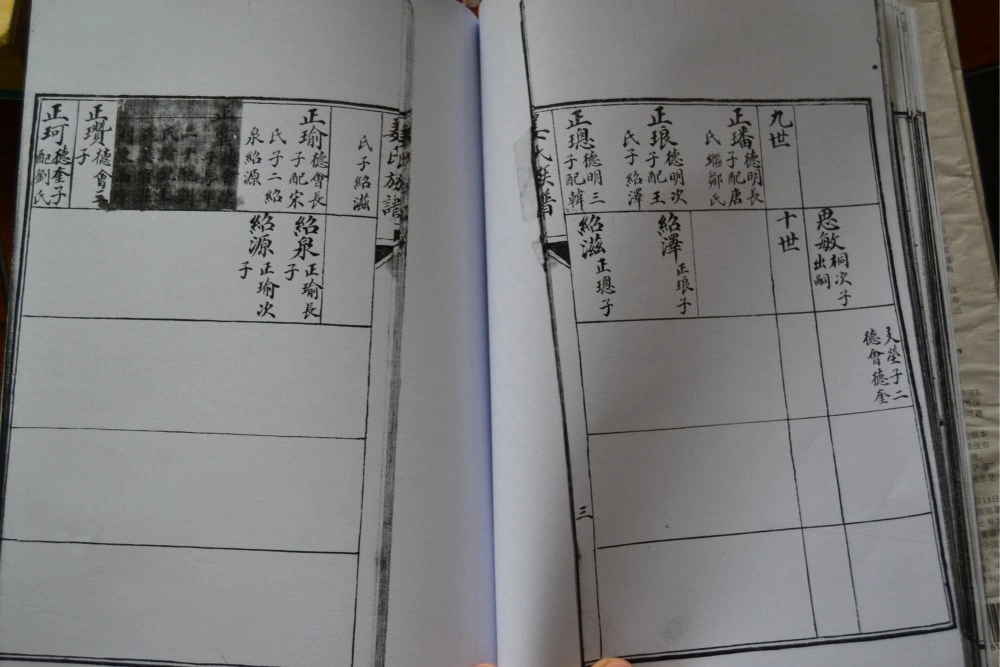 思敏
桐次子
出嗣
子二
德會德奎
九世
十世
正璠
德明長
子配唐
氏繼鄒氏
正琅
德明次
子配王
氏子紹澤
紹澤
正琅子
正璁
德明三
子配韓
紹滋
正璁子
氏族譜
三
氏子紹滋
正瑜
德會長
子配宋
氏子二紹
泉紹源
紹泉
正瑜長
子
紹源
正瑜次
子
正瓚
德會三
子
正珂
德奎子
配劉氏